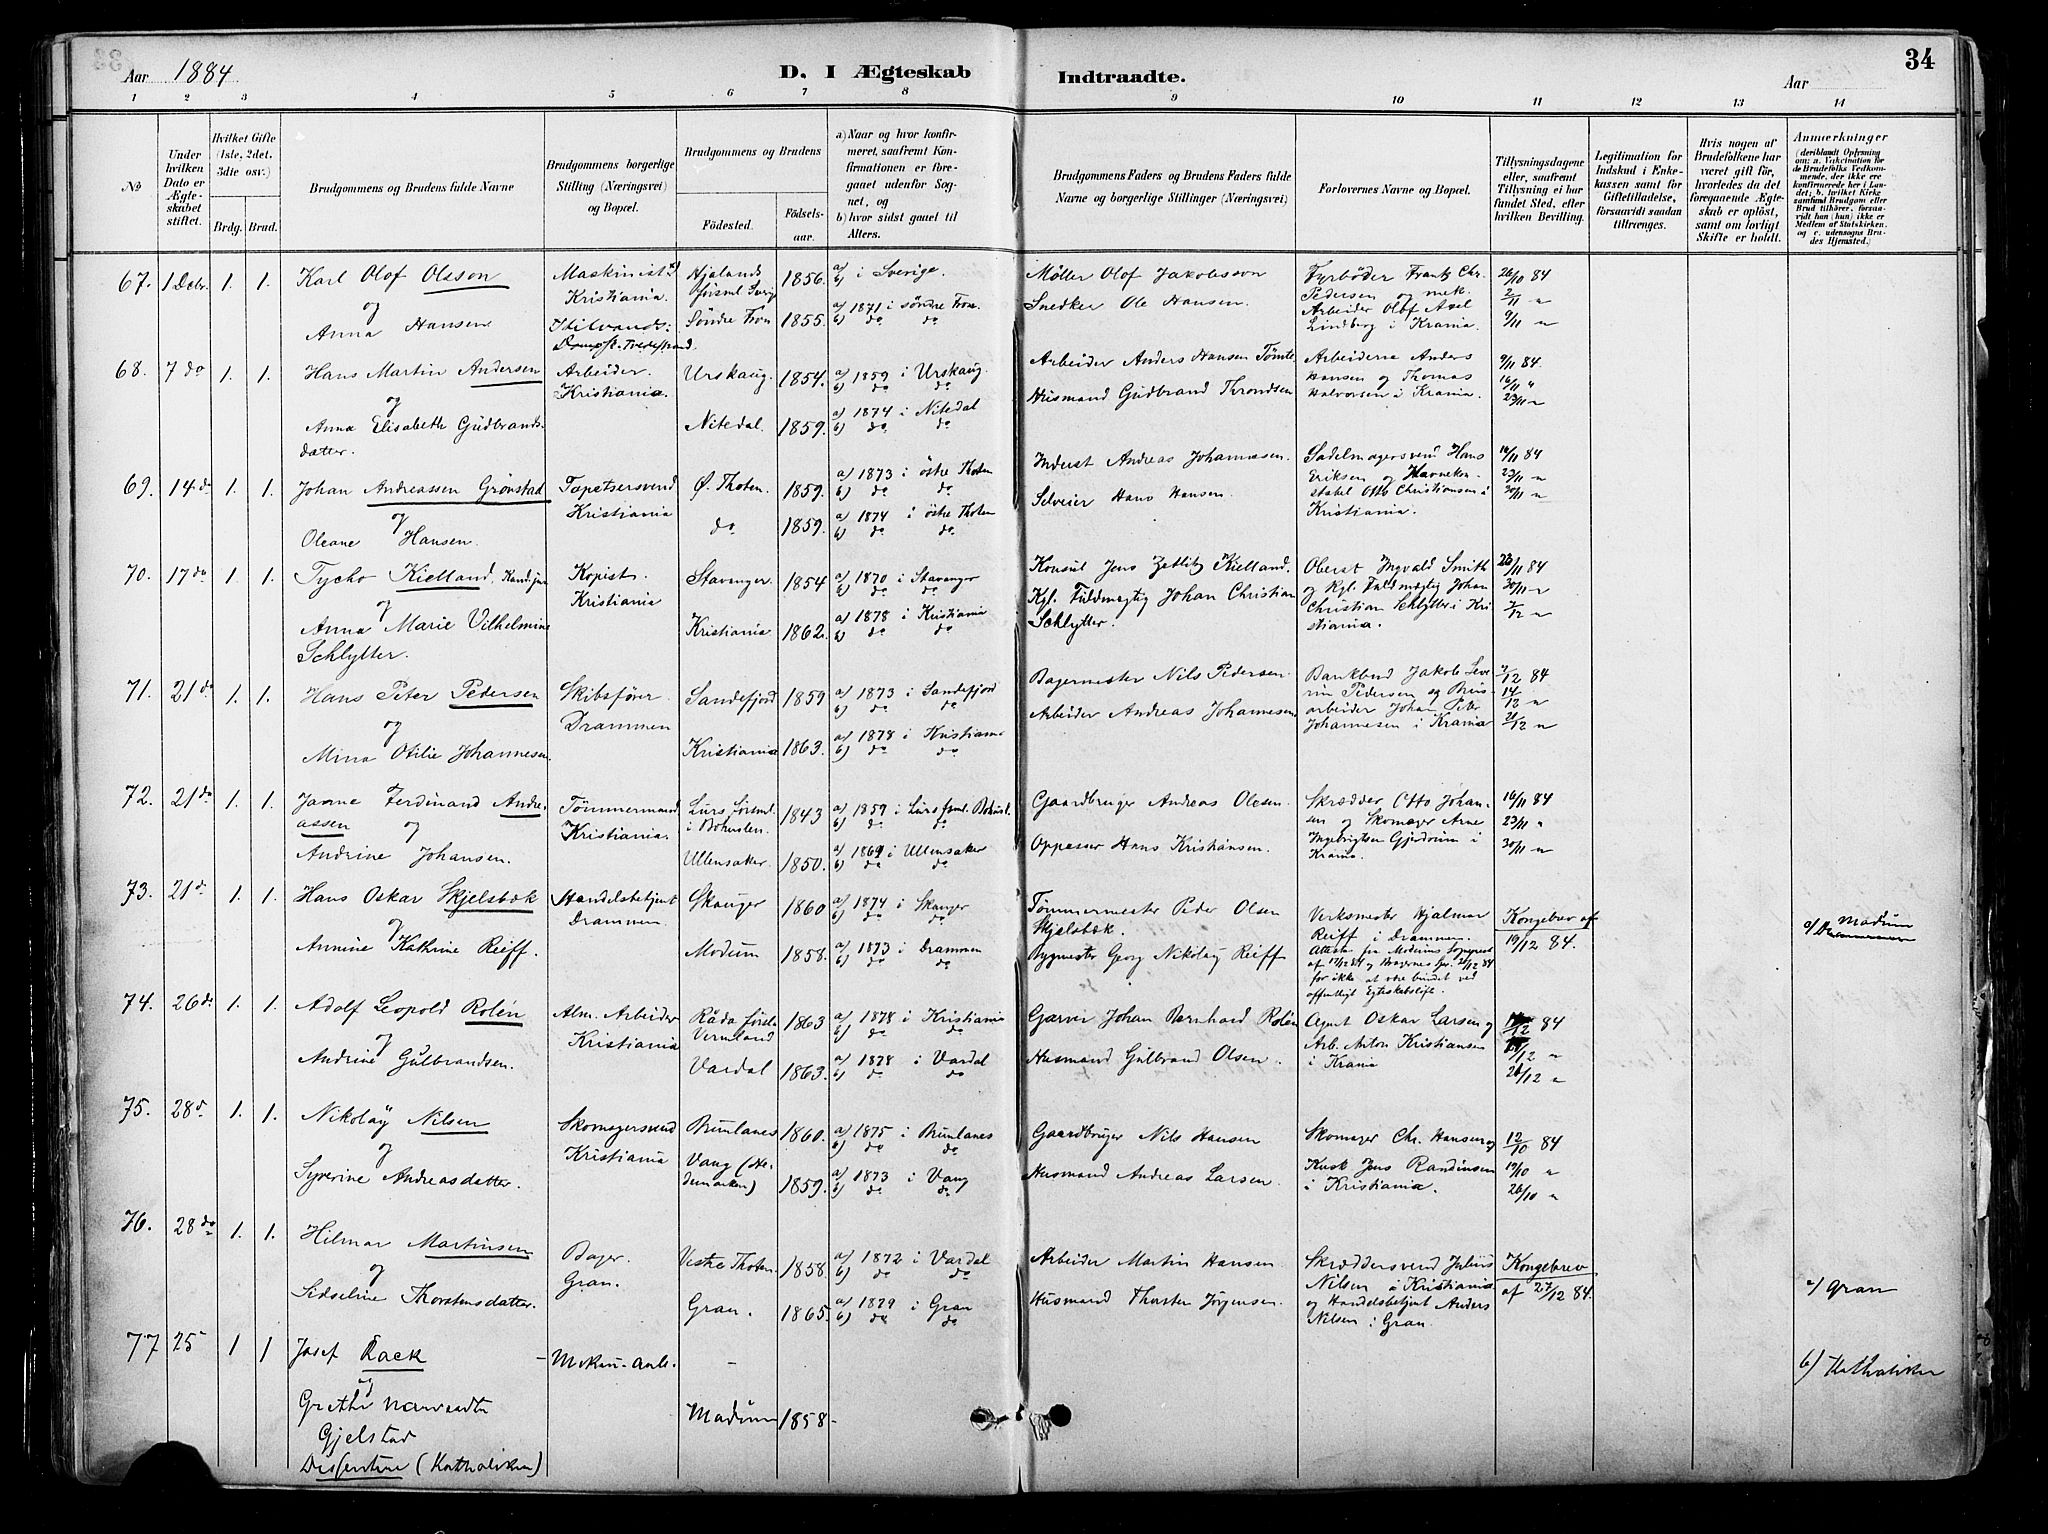 Aar 1884
D. I Ægteskab Indtraadte.
Aar
34
1 2 3 4 5 6 7 8 9 10 11 12 13 14
No
Under hvilken Dato er Ægteskabet stiftet.
Hvilket Gifte (1ste, 2det, 3die osv.)
Brdg. Brud.
Brudgommens og Brudens fulde Navne
Brudgommens borgerlige Stilling (Næringsvei) og Bopæl.
Brudgommens og Brudens
Fødested. Fødselsaar.
a) Naar og hvor konfirmeret, saafremt Konfirmationen er foregaaet udenfor Sognet, og
b) hvor sidst gaaet til Alters.
Brudgommens Faders og Brudens Faders fulde Navne og borgerlige Stillinger (Næringsvei)
Forlovernes Navne og Bopæl.
Tillysningsdagene eller, saafremt Tillysning ei har fundet Sted, efter hvilken Bevilling.
Legitimation for Indskud i Enkekassen samt for Giftetilladelse, forsaavidt saadan tiltrænges.
Hvis nogen af Brudefolkene har været gift før, hvorledes da det foregaaende Ægteskab er opløst, samt om lovligt Skifte er holdt.
Anmærkninger (deriblandt Oplysning om: a. Vakcination for de Brudefolks Vedkommende, der ikke ere konfirmerede her i Landet; b. hvilket Kirkesamfund Brudgom eller Brud tilhører, forsaavidt han (hun) ikke er Medlem af Statskirken, og c. udensogns Brudes Hjemsted.)
67. 1 Debr. 1. 1. Karl Olof Olsson
og
Anna Hansen
Maskinist
Kristiania.
Tvedestrand
1856. a) b) i Sverige.
Søndre Fron 1855. a) 1871 i søndre Fron. b) do do
Møller Olof Jakobsson
Snedker Ole Hansen.
Fyrbøder Frantz Chr. Pedersen og mek. Arbeider Olof Axel Lindberg i Krania.
26/10 84
2/11 "
9/11 "
68. 7 do 1. 1. Hans Martin Andersen
og
Anna Elisabeth Gudbrandsdatter.
Arbeider.
Kristiania.
Urskaug. 1854. a) 1859 i Urskaug. b) do do
Nitedal. 1859. a) 1874 i Nitedal b) do do
Arbeider Anders Hansen Tømte
Husmand Gudbrand Throndsen
Arbeiderne Anders Hansen og Thomas Halvorsen i Krania.
9/11 84.
16/11 "
23/11 "
69. 14 do 1. 1. Johan Andreassen Grønstad
og
Oleane Hansen.
Tapetsersvend
Kristiania
Ø. Thoten. 1859. a) 1873 i østre Thoten b) do do
do 1859. a) 1874 i østre Thoten b) do do
Inderst Andreas Johannesen.
Selveier Hans Hansen.
Sadelmagersvend Hans Eriksen og Havnekonstabel Otto Christiansen i Kristiania.
16/11 84
23/11 "
30/11 "
70. 17 do 1. 1. Tycho Kielland, Kand. jur.
og
Anna Marie Vilhelmine Schlytter.
Kopist.
Kristiania
Stavanger. 1854 a) 1870 i Stavanger b) do
Kristiania 1862. a) 1878 i Kristiania b) do do
Konsul Jens Zetlitz Kielland.
Kgl. Fuldmægtig Johan Christian Schlytter.
Oberst Ingvald Smith og Kgl. Fuldmægtig Johan Christian Schlytter i Kristiania.
23/11 84
30/11 "
7/12 "
71. 21 do 1. 1. Hans Peter Pedersen
og
Mina Otilie Johannesen.
Skibsfører.
Drammen
Sandefjord 1859 a) 1873 i Sandefjord b) do do
Kristiania 1863. a) 1878 i Kristiania b) do do
Bagermester Nils Pedersen.
Arbeider Andreas Johannesen.
Bankbud Jakob Severin Pedersen og Brusarbeider Johan Peter Johannesen i Krania
7/12 84
14/12 "
21/12 "
72. 21 do 1. 1. Janne Ferdinand Andreassen
og
Andrine Johansen.
Tømmermand
Kristiania.
Lurs Førsml. i Bohuslen. 1843 a) 1859 i Lurs fsml. Bohusl. b) do do
Ullensaker. 1850. a) 1869 i Ullensaker b) do do
Gaardbruger Andreas Olesen.
Oppasser Hans Kristiansen.
Skrædder Otto Johansen og Skomager Arne Ingebrigtsen Gjerdrum i Krania.
16/11 84
23/11 "
30/11 "
73. 21 do 1. 1. Hans Oskar Skjelsbæk
og
Annine Kathrine Reiff.
Handelsbetjent
Drammen
Skauger 1860 a) 1874 i Skauger b) do do
Modum 1858. a) 1873 i Drammen b) do do
Tømmermester Peder Olsen Skjelsbæk.
Bygmester Georg Nikolay Reiff
Verksmester Hjalmar Reiff i Drammen.
Attester fra Modums Sognepræst af 17/12 84 og Bragernes for ikke at være bundet ved offentligt Egteskabsløfte.
Kongebrev af 19/12 84.
c) Modum
74. 26 do 1. 1. Adolf Leopold Rolén
og
Andrine Gulbrandsen.
Alm. Arbeider
Kristiania
Råda førsl. Vermland 1863 a) 1878 i Kristiania b) do do
Vardal 1863. a) 1878 i Vardal b) do do
Garver Johan Bernhard Rolén
Husmand Gulbrand Olsen.
Agent Oskar Larsen og Arb. Anton Kristiansen i Krania
/12 84
/12 "
26/12 "
75. 28 do 1. 1. Nikolay Nilsen
og
Syverine Andreasdatter.
Skomagersvend
Kristiania
Brunlanes 1860. a) 1875 i Brunlanes b) do do
Vang (Hedemarken) 1859. a) 1873 i Vang b) do do
Gaardbruger Nils Hansen
Husmand Andreas Larsen.
Skomager Chr. Hansen og Kusk Jens Randinsen i Kristiania.
12/10 84
19/10 "
26/10 "
76. 28 do 1. 1. Hilmar Martinsen
og
Sidseline Thorstensdatter.
Bager.
Gran.
Vestre Thoten. 1858. a) 1872 i Vardal b) do do
Gran. 1865. a) 1879 i Gran b) do do
Arbeider Martin Hansen
Husmand Thorsten Jørgensen.
Skræddersvend Julius Nilsen i Kristiania og Handelsbetjent Anders Nilsen i Gran.
Kongebrev af 27/12 84.
c) Gran
77 25 1 1 Josef Rack
og
Grethe
Gjelstad
Dissentere (Katholiker)
- Mekan. Arb. -
Modum 1858 -
b) Katholiker